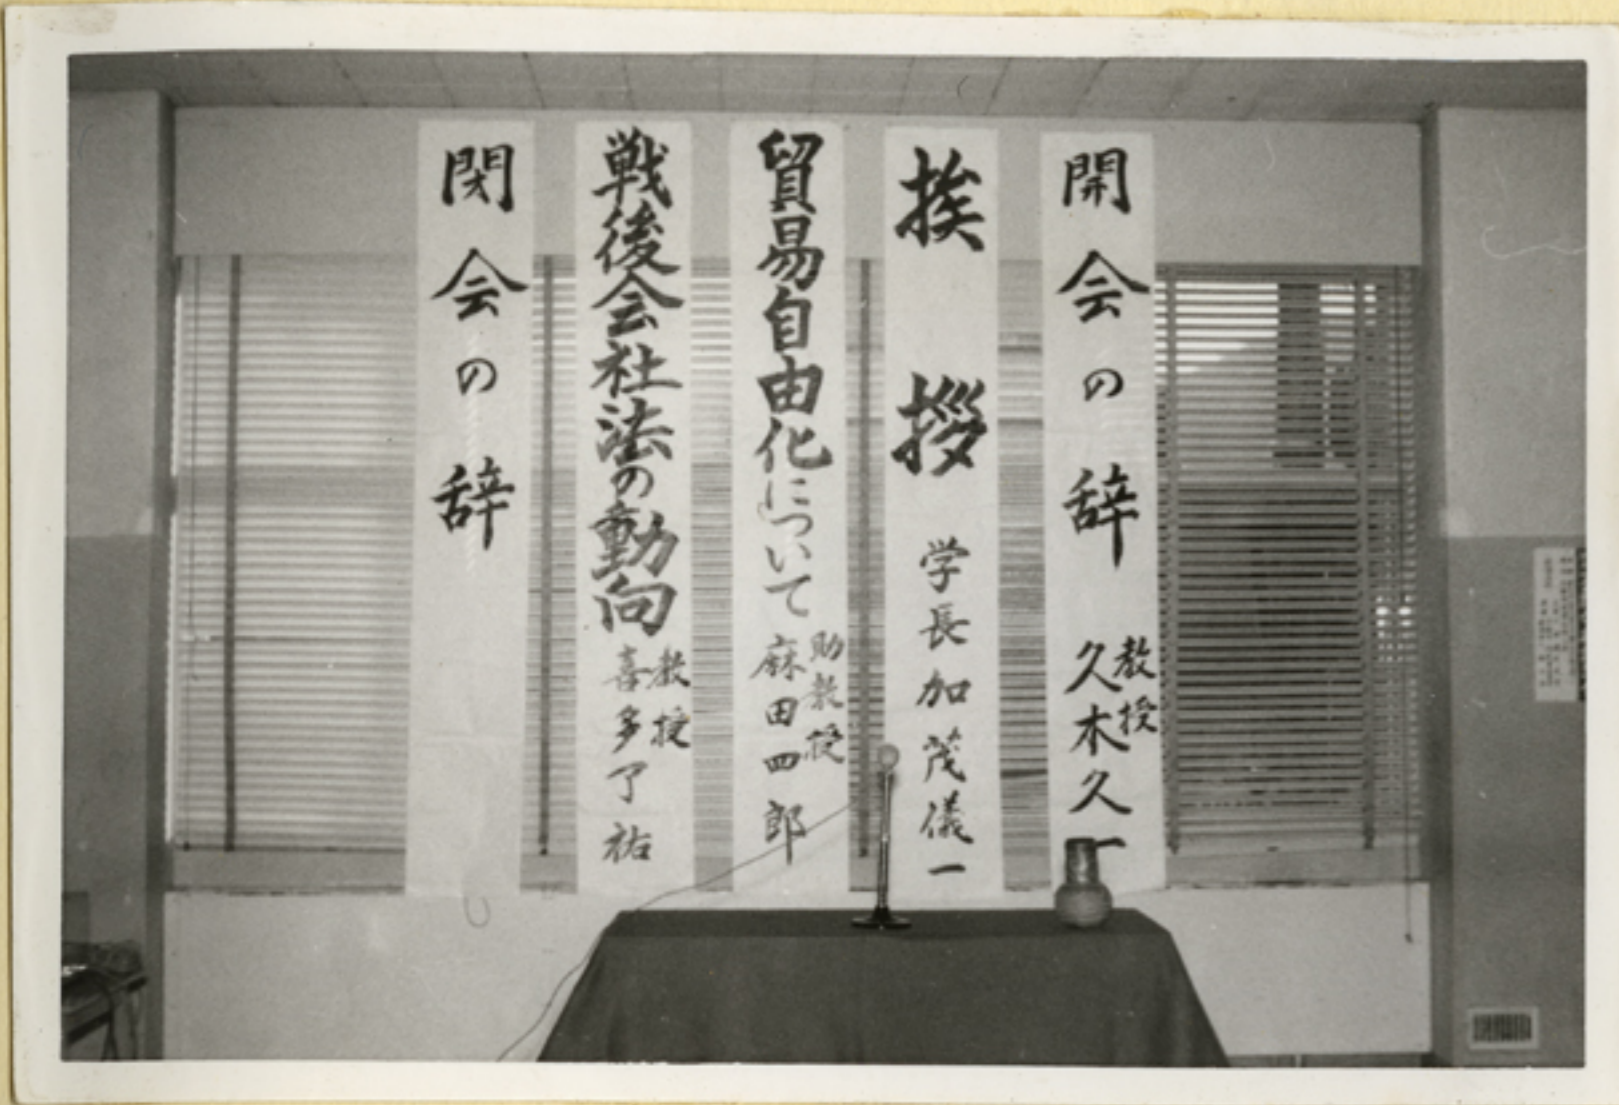 開会の辞 教授 久木久一
挨拶 学長 加茂儀一
貿易自由化について 助教授 麻田四郎
戦後会社法の動向 教授 喜多了祐
閉会の辞